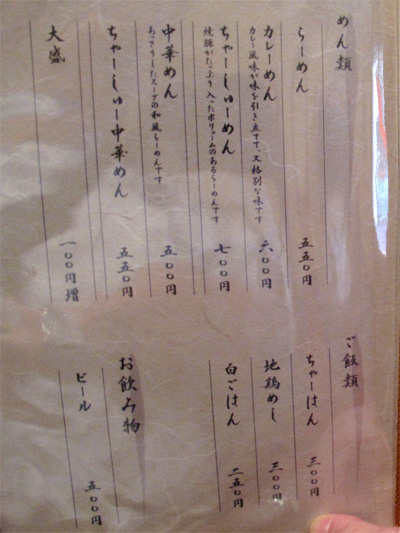 めん類
らーめん 五五〇円
カレーめん 六〇〇円
カレー風味が味を引き立てて、又格別な味です
ちゃーしゅーめん 七〇〇円
焼豚がたっぷり入ったボリュームのあるらーめんです
中華めん 五〇〇円
あっさりしたスープの和風らーめんです
ちゃーしゅー中華めん 五五〇円
大盛 一〇〇円増
ご飯類
ちゃーはん 三〇〇円
地鶏めし 三〇〇円
白ごはん 二五〇円
お飲み物
ビール 五〇〇円